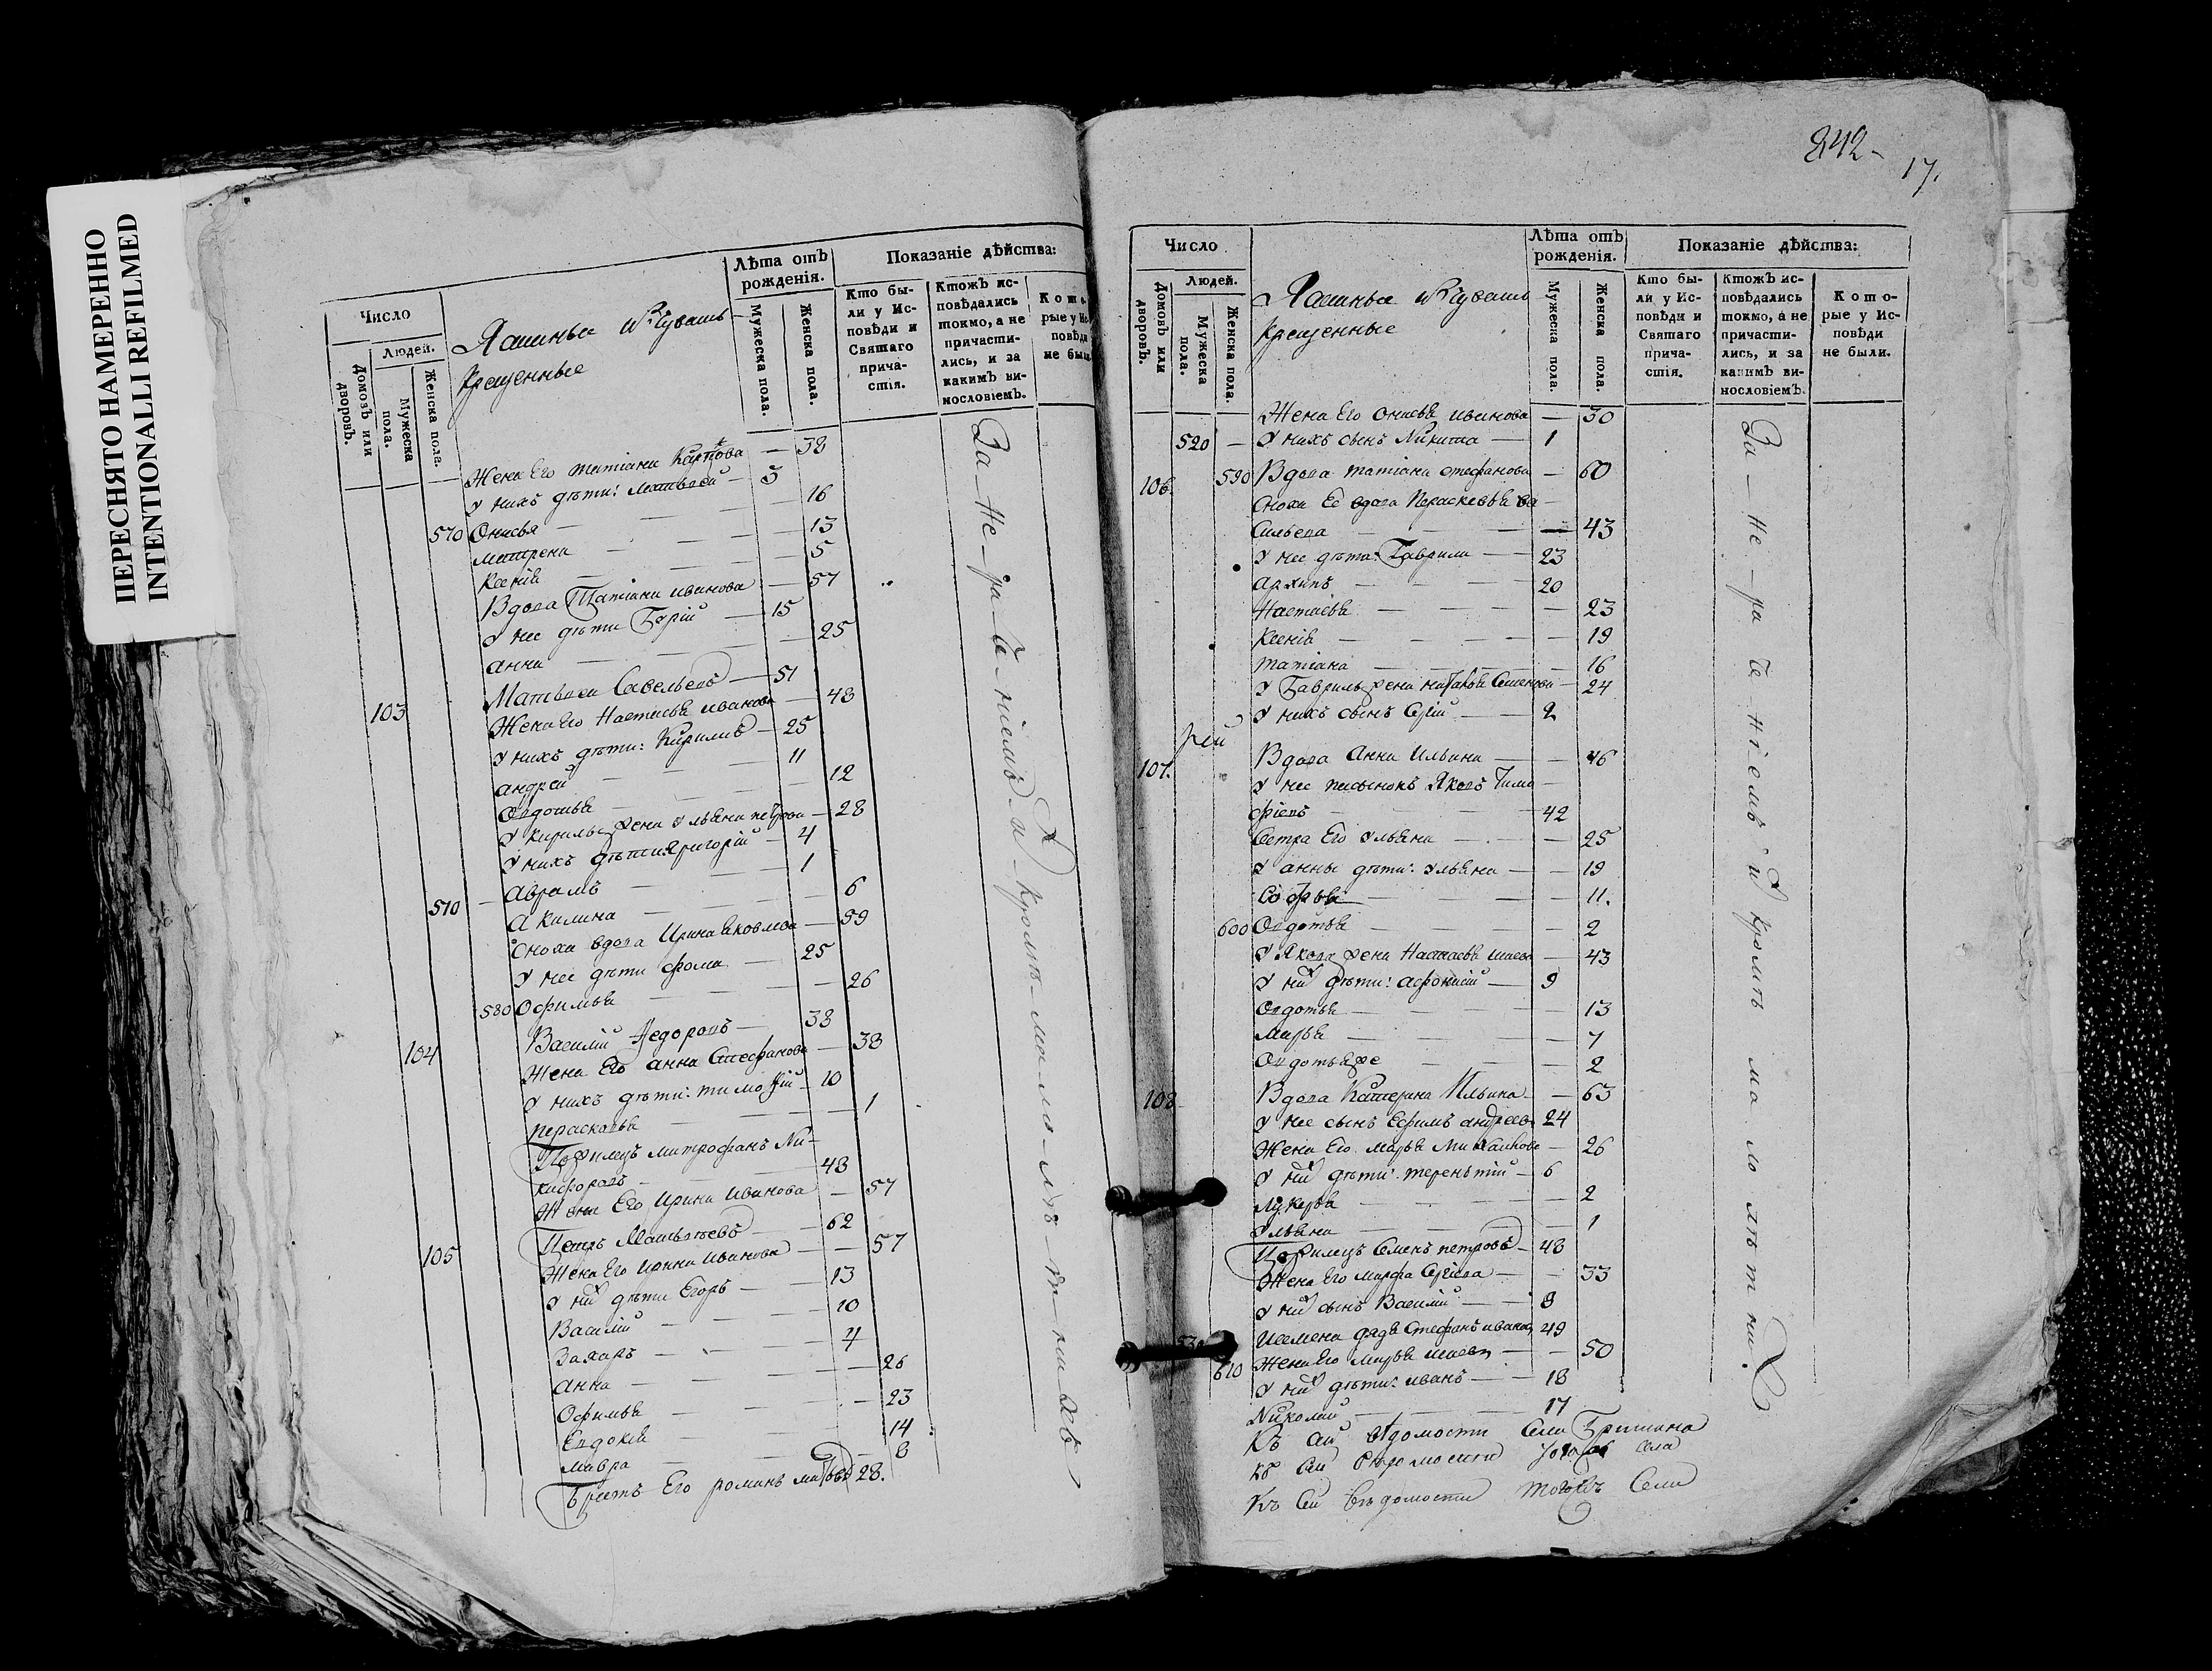 ПЕРЕСНЯТО НАМЕРЕННО
INTENTIONALLI REFILMED
Число
Людей.
Домовъ или дворовъ.
Мужеска пола.
Женска пола.
Ясашныя изъ Чувашъ
крещенные
Лѣта отъ рожденія.
Мужеска пола.
Женска пола.
Показаніе дѣйства:
Кто были у Исповѣди и Святаго причастія.
Ктожъ исповѣдались токмо, а не причастились, и за какимъ винословіемъ.
Которые у Исповѣди не были.
Жена Его татіана Карпова — 38
У нихъ дѣти: Матвѣй — 3
570 Онисья — 16
матрена — 13
Ксенія — 5
Вдова Татіана иванова — 57
У нее дѣти — 15
анна — 25
103 Матвѣй Савельевъ — 51
Жена Его Настасья иванова — 48
У нихъ дѣти: Кирилъ — 25
андрей — 11
Овдотья — 12
У Кирилы жена Ульяна петрова — 28
У нихъ дѣти Григорій — 4
510 аврамъ — 1
Акилина — 6
Сноха вдова Ирина яковлева — 59
У нее дѣти фома — 25
580 Офимья — 26
104 Василий Федоровъ — 38
Жена Его анна Стефанова — 38
У нихъ дѣти: тимофій — 10
перасковья — 1
митрофанъ Ни-
кифоровъ — 48
Жена Его Ирина Иванова — 57
105 Петръ Матвѣевъ — 62
Жена Его Ирина Иванова — 57
У ни дѣти Егоръ — 13
Василий — 10
Захаръ — 4
анна — 26
Офимья — 23
Евдокія — 14
мавра — 8
Братъ Его романъ 28.
За не раченіемъ и кромѣ малолѣтнихъ
842
17.
Число
Людей.
Домовъ или дворовъ.
Мужеска пола.
Женска пола.
Ясашныя изъ Чувашъ
крещенные
Лѣта отъ рожденія.
Мужеска пола.
Женска пола.
Показаніе дѣйства:
Кто были у Исповѣди и Святаго причастія.
Ктожъ исповѣдались токмо, а не причастились, и за какимъ винословіемъ.
Которые у Исповѣди не были.
Жена Его Онисья иванова — 30
520 — У нихъ сынъ Никита — 1
106. 590 Вдова татіана стефанова — 60
Сноха Ее вдова Пераскевья Ва-
сильева — 43
У нее дѣти: Гаврила — 23
архипъ — 20
Настасья — 23
Ксенія — 19
татіана — 16
У Гаврилы жена Семенова — 24
У нихъ сынъ Сергій — 2
рей
107. Вдова Анна Ильина — 46
У нее пасынокъ Яковъ Тимо-
фіевъ — 42
Сестра Его Ульяна — 25
У анны дѣти: Ульяна — 19
Софья — 11.
600 Овдотья — 2
У Якова жена Настасья — 43
У ни дѣти: — 9
Овдотья — 13
Марья — 7
Овдотья же — 2
108 Вдова Катерина Ильина — 63
У нее сынъ Ефимъ андреевъ 24
Жена Его марья Михайлова — 26
У ни дѣти: терентій — 6
Лукерья — 2
Ульяна — 1
Семенъ петровъ — 48
Жена Его марфа Сергіева — 33
У ни сынъ Василий — 8
530 дядя Стефанъ иванов 49
610 Жена Его марья — 50
У ни дѣти: иванъ — 18
Николай — 17
За не раченіемъ и кромѣ малолѣтни
Къ сей вѣдомости села
Къ сей вѣдомости села
Къ сей вѣдомости тогожъ Села